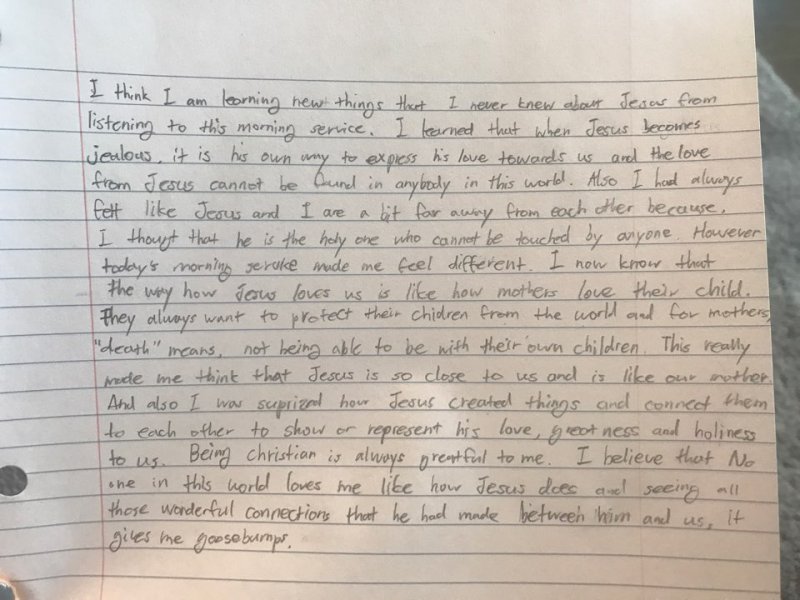 I think I am learning new things that I never knew about Jesus from
listening to this morning service. I learned that when Jesus becomes
jealous, it is his own way to express his love towards us and the love
from Jesus cannot be found in anybody in this world. Also I had always
felt like Jesus and I are a bit far away from each other because,
I thougt that he is the holy one who cannot be touched by anyone. However
today's morning service made me feel different. I now know that
the way how Jesus loves us is like how mothers love their child.
They always want to protect their chidren from the world and for mothers,
"death" means, not being able to be with their own children. This really
made me think that Jesus is so close to us and is like our mother.
And also I was suprized how Jesus created things and connect them
to each other to show or represent his love, greatness and holiness
to us. Being christian is always greatful to me. I believe that No
one in this world loves me like how Jesus does and seeing all
those wonderful connections that he had made between him and us, it
gives me goosebumps.